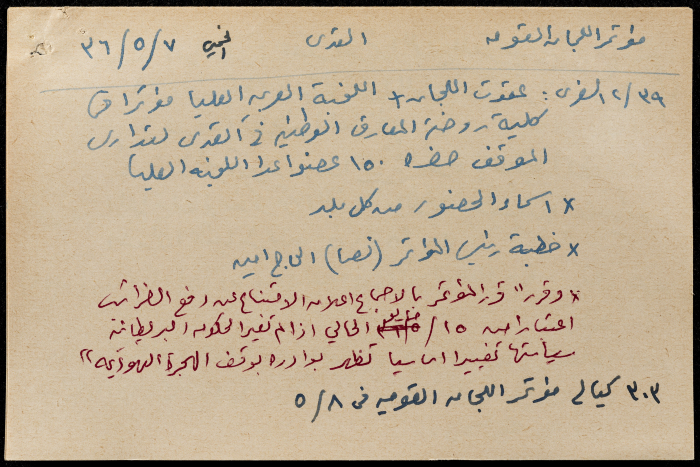 مؤتمر اللجان القومية القدس الخميس ٣٦/٥/٧
١٢/٣٩ السفري: عقدت اللجان + اللجنة العربية العليا مؤتمرا في
كلية روضة المعارف الوطنية في القدس لتدارس
الموقف حضره ١٥٠ عضوا عدا اللجنة العليا
× اسماء الحضور من كل بلد
× خطبة رئيس المؤتمر (نصا) الحاج امين
× وقرر "قرر المؤتمر بالاجماع اعلان الامتناع عن دفع الضرائب
اعتبارا من ١٥/ الحالي اذا لم تغير الحكومة البريطانية
سياستها تغييرا اساسيا تظهر بوادره بوقف الهجرة اليهودية"
٣٠٣ كيالي مؤتمر اللجان القومية في ٥/٨